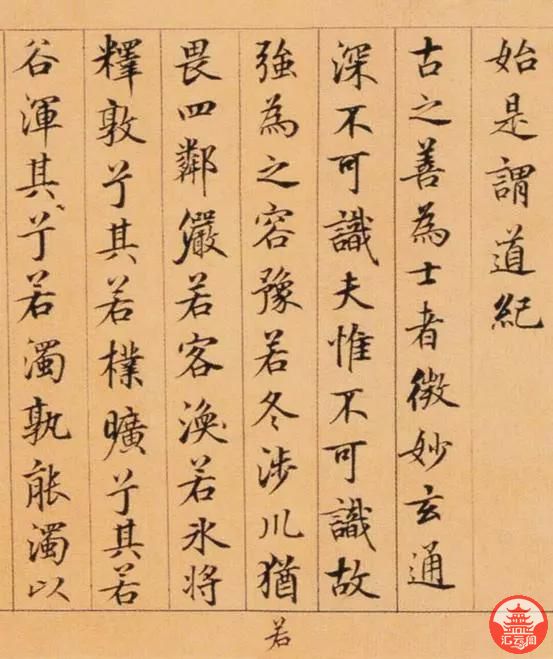 始是謂道紀
古之善為士者微妙玄通
深不可識夫惟不可識故
強為之容豫若冬涉川猶
畏四鄰儼若客渙若冰將
釋敦兮其若樸曠兮其若
谷渾其兮若濁孰能濁以
若
汇云阁